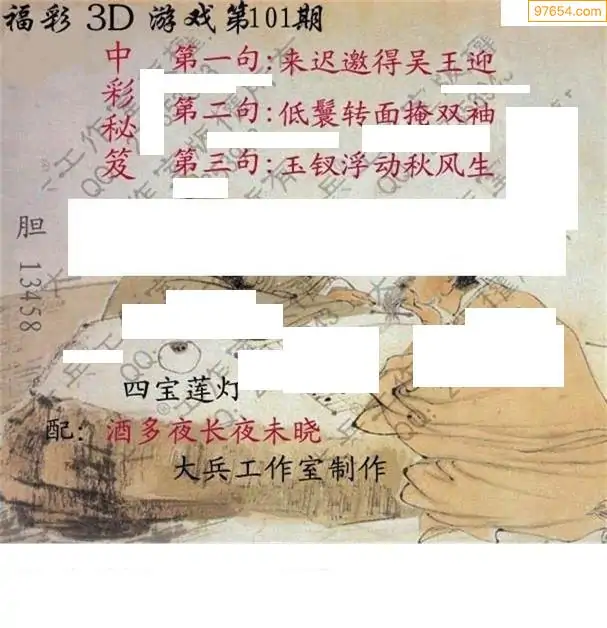 97654.com
福彩 3D 游戏第101期
中彩秘笈
第一句:来迟邀得吴王迎
第二句:低鬟转面掩双袖
第三句:玉钗浮动秋风生
胆 13458
四宝莲灯
配:酒多夜长夜未晓
大兵工作室制作